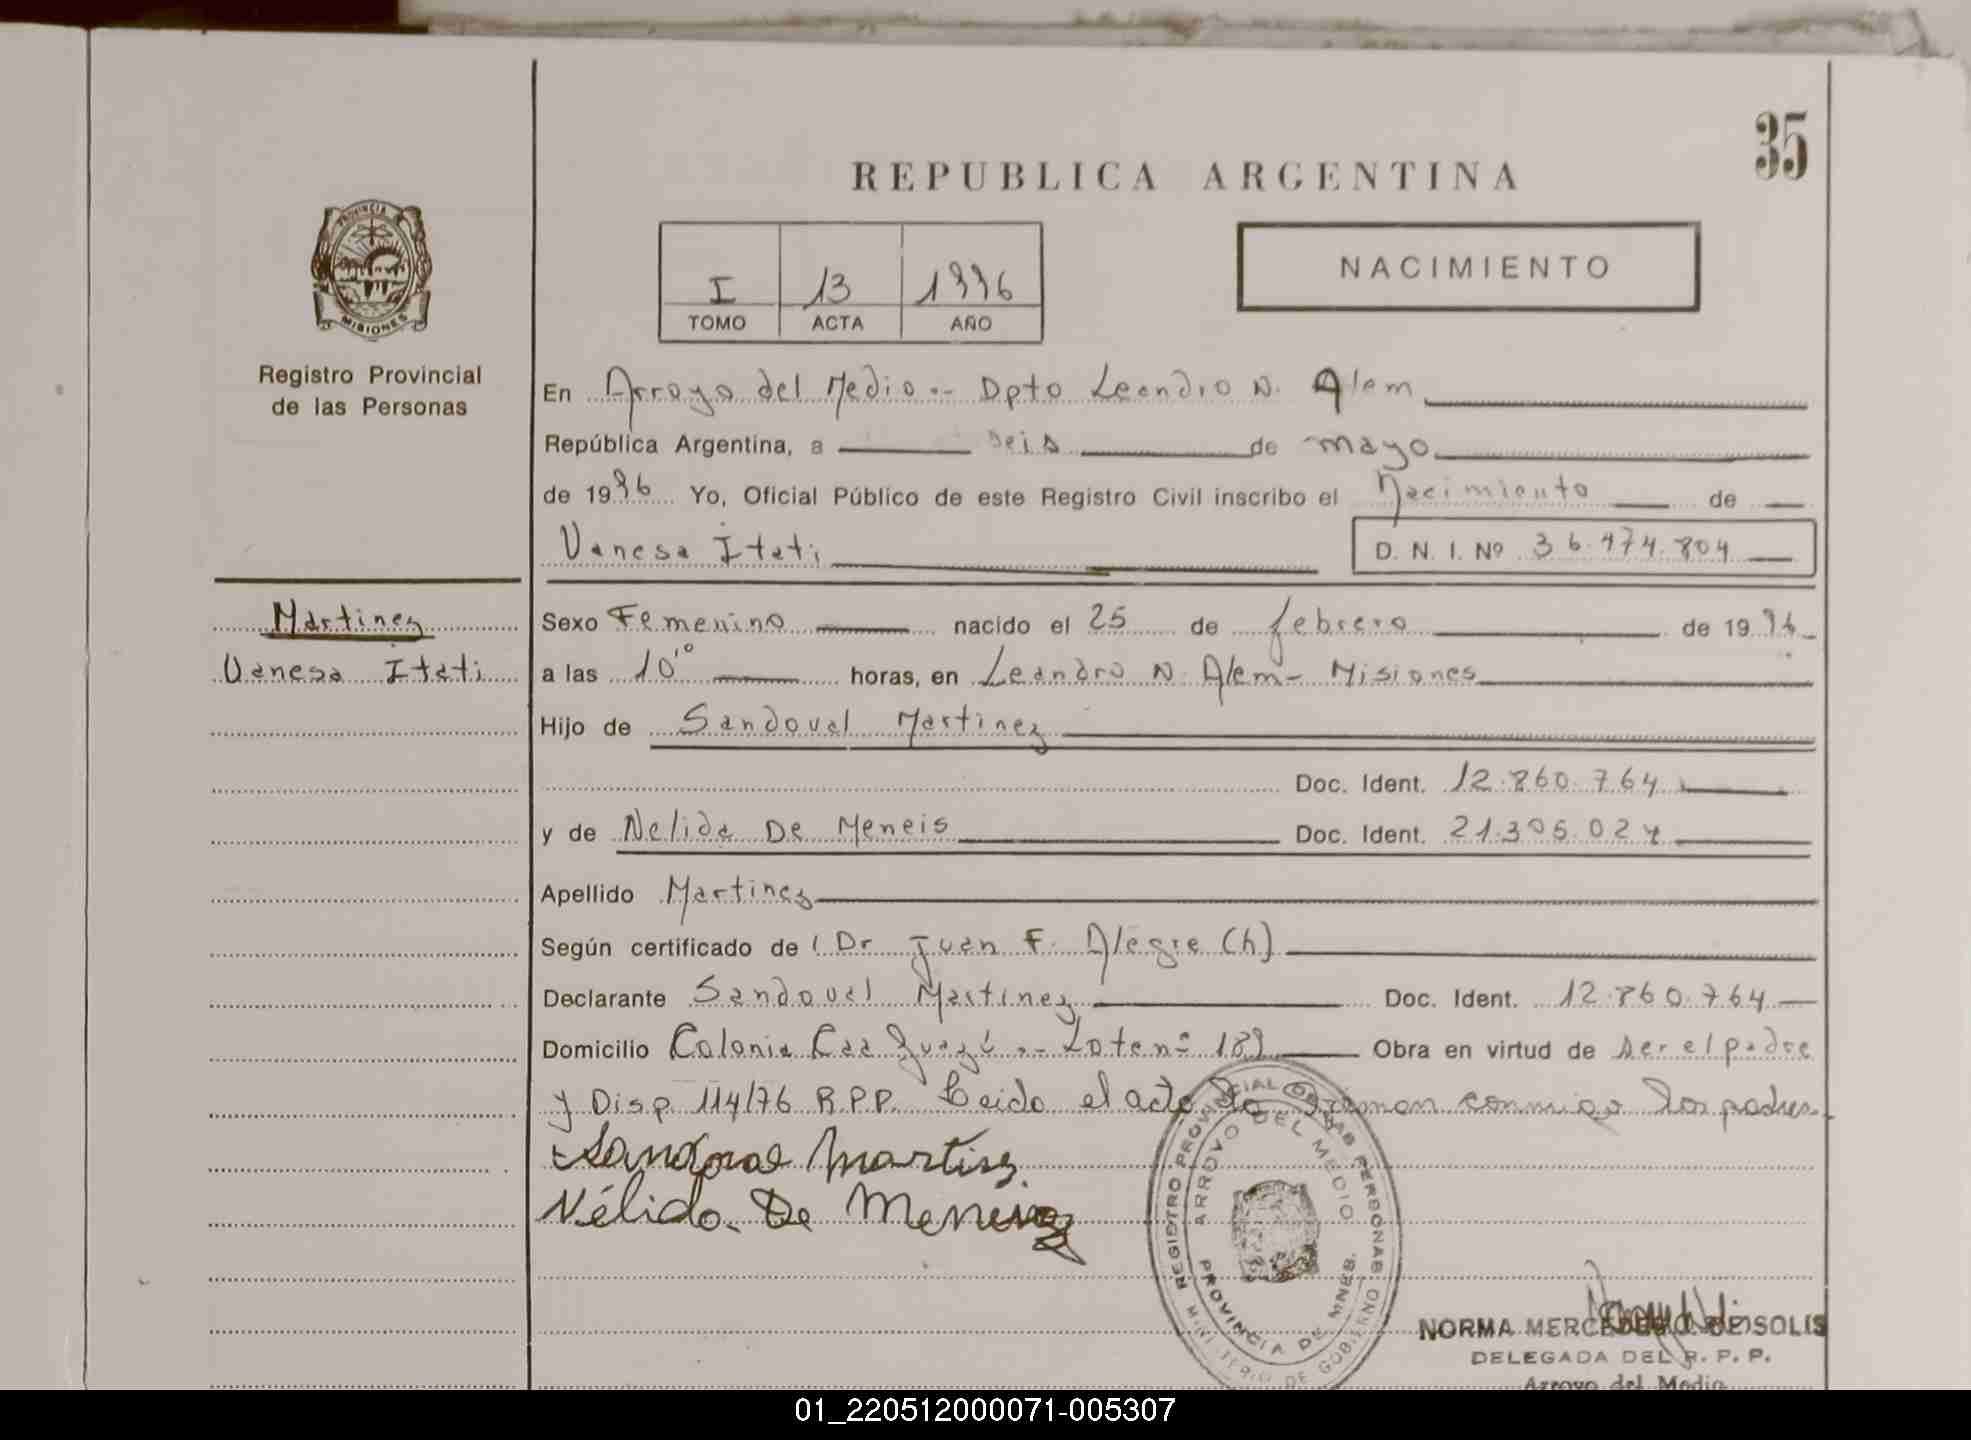 35
REPUBLICA ARGENTINA
PROVINCIA DE
MISIONES
Registro Provincial
de las Personas
I 13 1996
TOMO ACTA AÑO
NACIMIENTO
En Arroyo del Medio.- Dpto Leandro N. Alem
República Argentina, a seis de mayo
de 1996 Yo, Oficial Público de este Registro Civil inscribo el Nacimiento de
Vanesa Itati D. N. I. Nº 36.474.804
Martinez
Vanesa Itati
Sexo Femenino nacido el 25 de febrero de 1996
a las 10,10 horas, en Leandro N. Alem- Misiones
Hijo de Sandoval Martinez
Doc. Ident. 12.860.764
y de Nelida De Meneis Doc. Ident. 21.305.024
Apellido Martinez
Según certificado de Dr Juan F. Alegre (h)
Declarante Sandoval Martinez Doc. Ident. 12.860.764
Domicilio Colonia Caa Guazú.- Lote nº 189 Obra en virtud de ser el padre
y Disp. 114/76 R.P.P. Leido el acta la firman conmigo los padres.
Sandoval Martinez
Nélida De Meneiz
REGISTRO PROVINCIAL DE LAS PERSONAS
ARROYO DEL MEDIO
PROVINCIA DE MNES.
MINISTERIO DE GOBIERNO
NORMA DE SOLIS
DELEGADA DEL R. P. P.
Arroyo del Medio
01_220512000071-005307